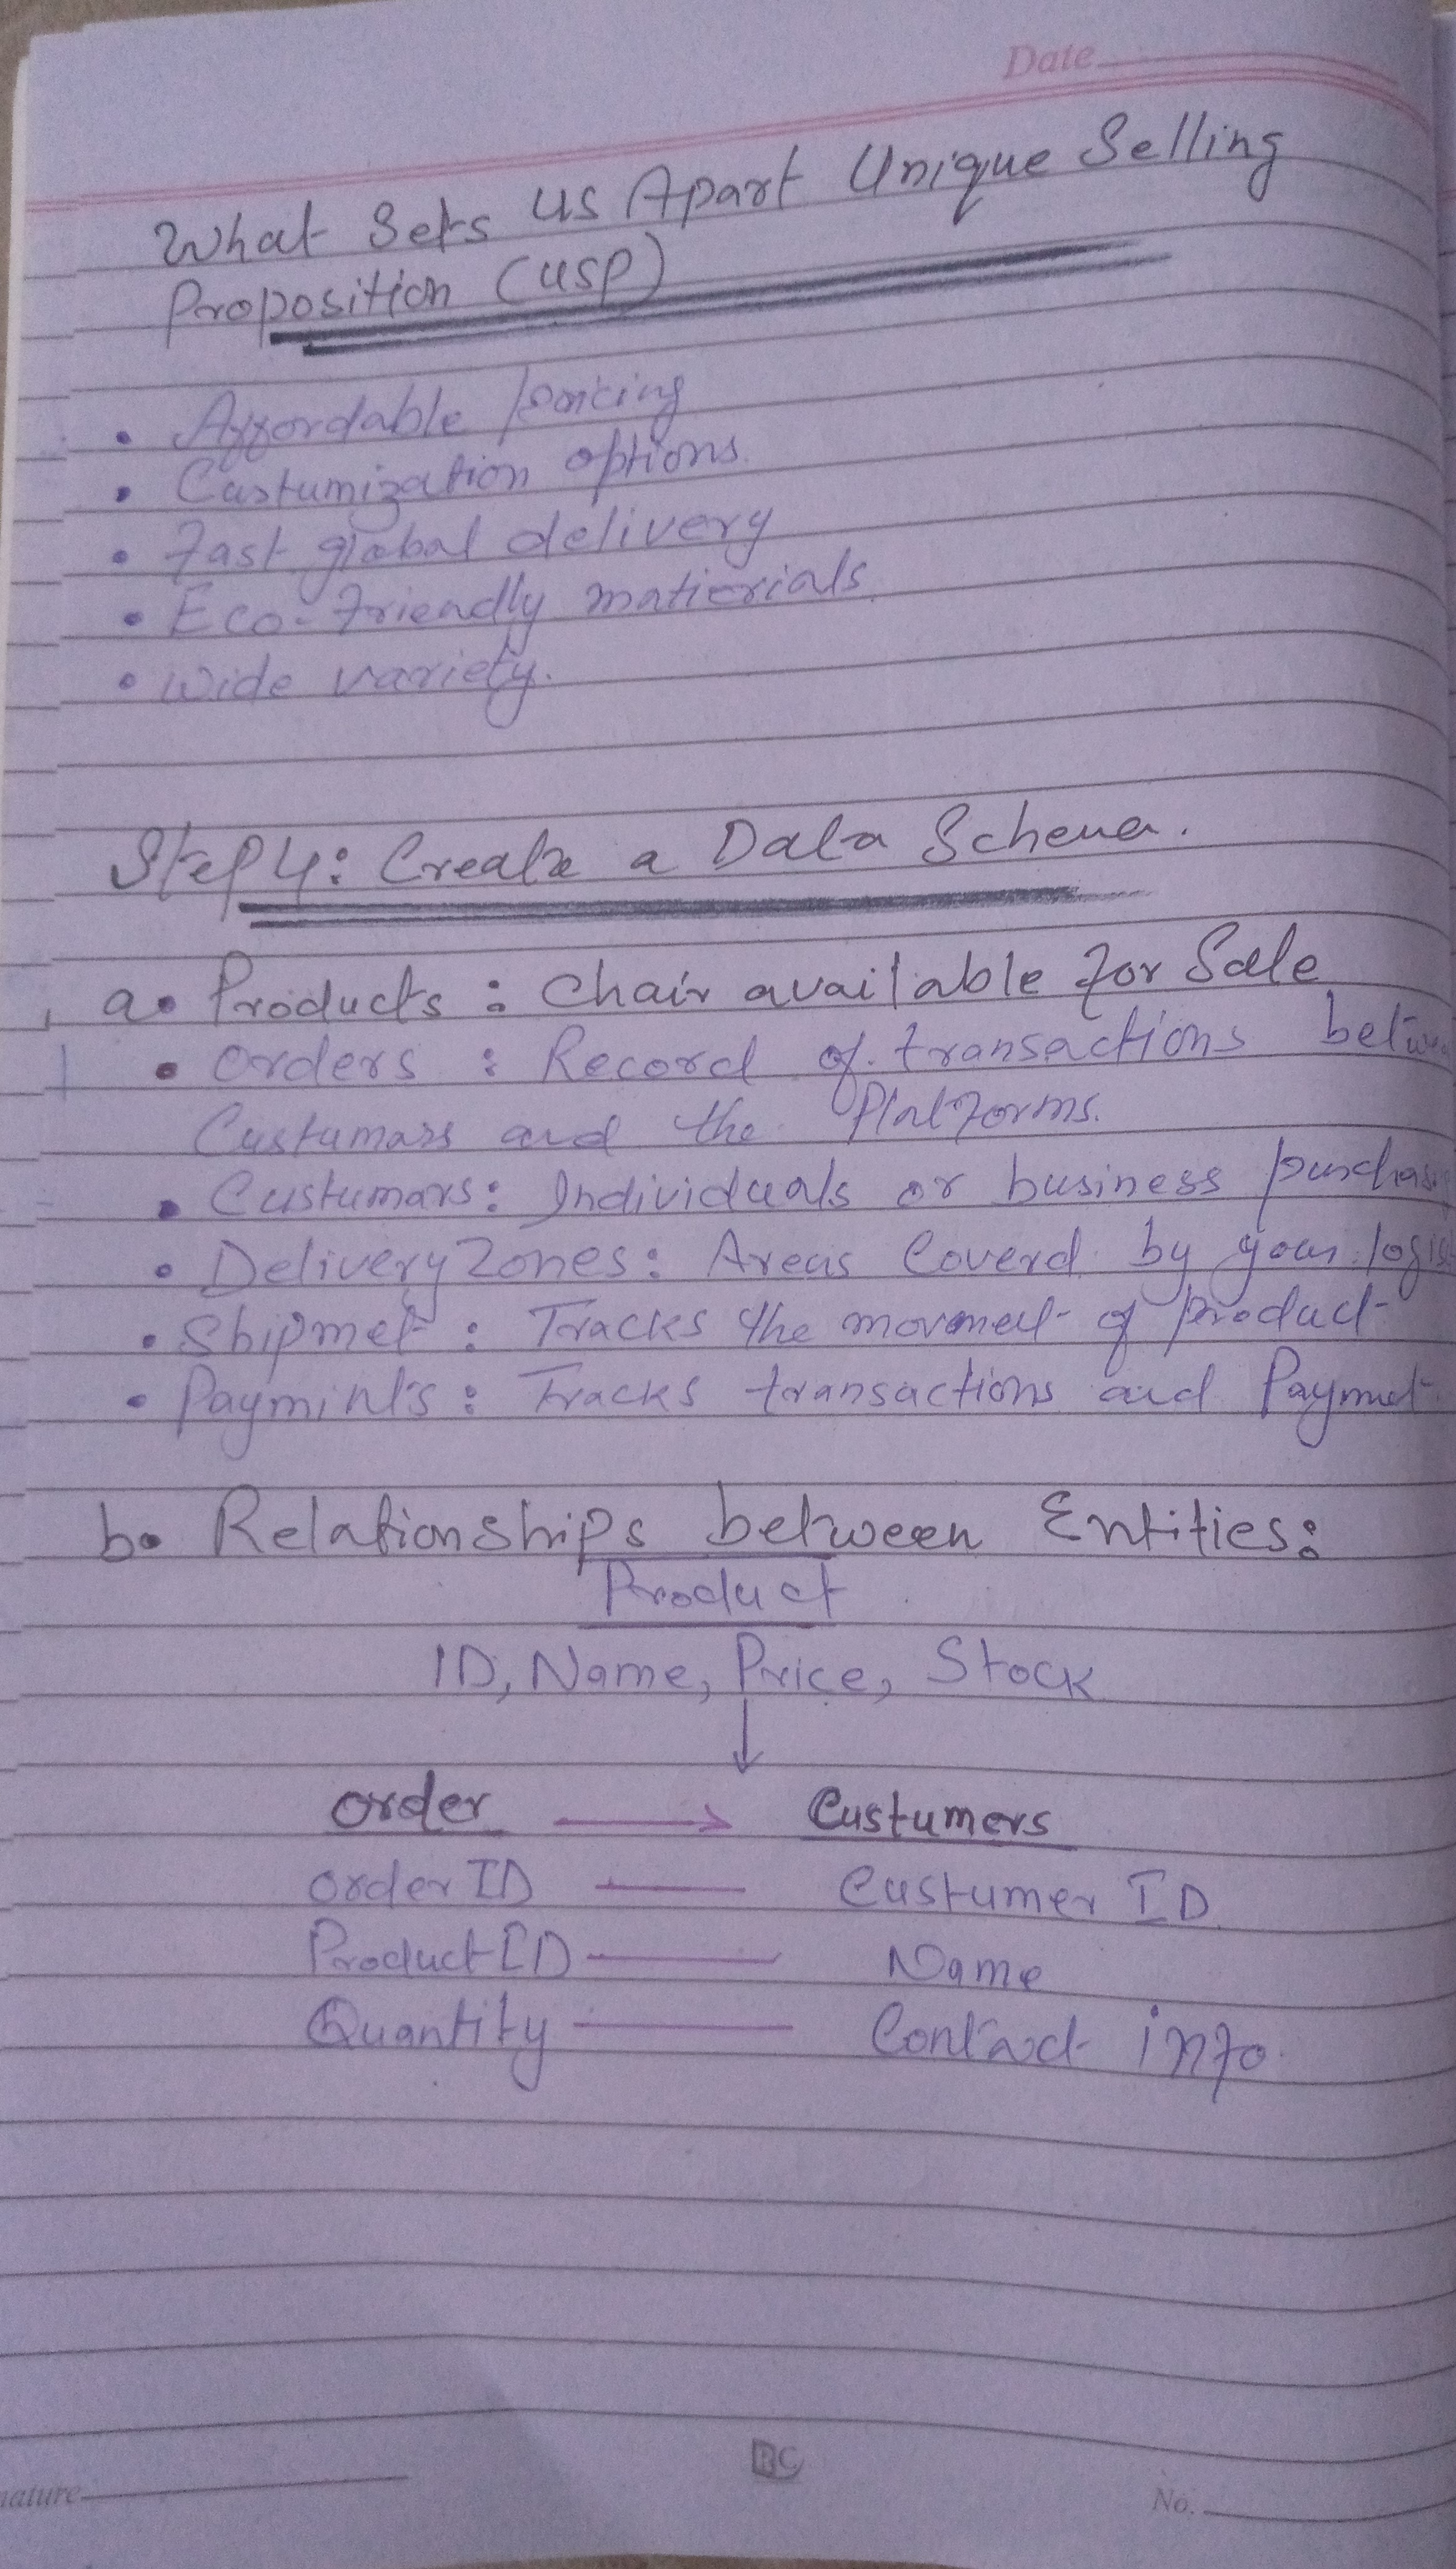 Date
What Sets us Apart Unique Selling
Proposition (USP)
• Affordable pricing
• Custumization options.
• Fast global delivery
• Eco-Friendly matierials.
• wide variety.
Step 4: Create a Data Schema.
a. Products : Chair available for Sale
• orders : Record of transactions betwe
Custumars and the Platforms.
• Custumars: Individuals or business purchas
• Delivery Zones: Areas Coverd by your logis
• Shipmet : Tracks the movmet of product
• Paymints : Tracks transactions and Paymet
b. Relationships between Entities:
Product
ID, Name, Price, Stock
order Custumers
order ID Custumer ID
Product ID Name
Quantity Contact info.
RC
nature
No.